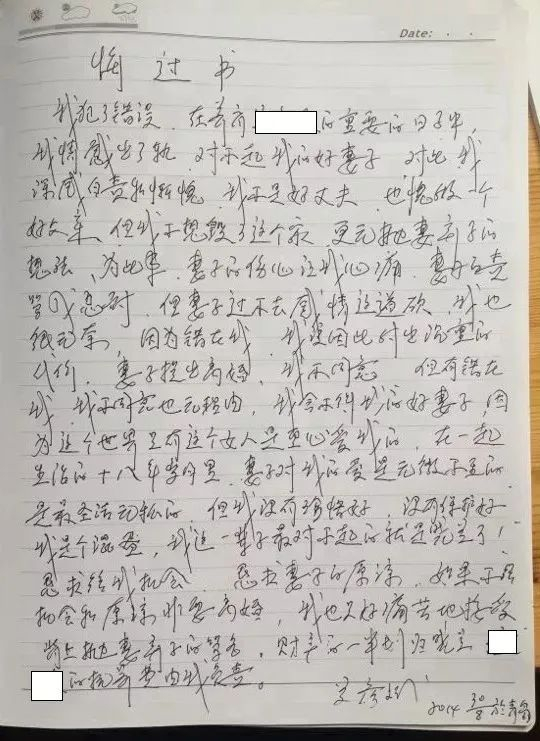 Date:
悔过书
我犯了错误、在养育 的重要的日子中,
我情感出了轨 对不起我的好妻子 对此我
深感自责和惭愧 我不是好丈夫 也愧做一个
好父亲 但我不想毁了这个家 更无抛妻弃子的
想法、为此事、妻子的伤心让我心痛 妻
但妻子过不去感情这道砍、我也
很无奈, 因为错在我、我要因此付出沉重的
代价、妻子提出离婚、我不同意 但有错在
我、我不同意也无理由, 我舍不得我的好妻子,因
为这个世界只有这个女人是真心爱我的、在一起
生活的十八年岁月里、妻子对我的爱是无微不至的
是最圣洁无私的 但我没有珍惜好、没有保护好
我是个混蛋, 我这一辈子最对不起的就是 了!
恳求给我机会 恳求妻子的原谅、如果不给
机会和原谅非要离婚, 我也只好痛苦地接受
背上抛妻弃子的骂名, 财产的一半划归
的抚养费由我负责。
2014 30/8 於青岛